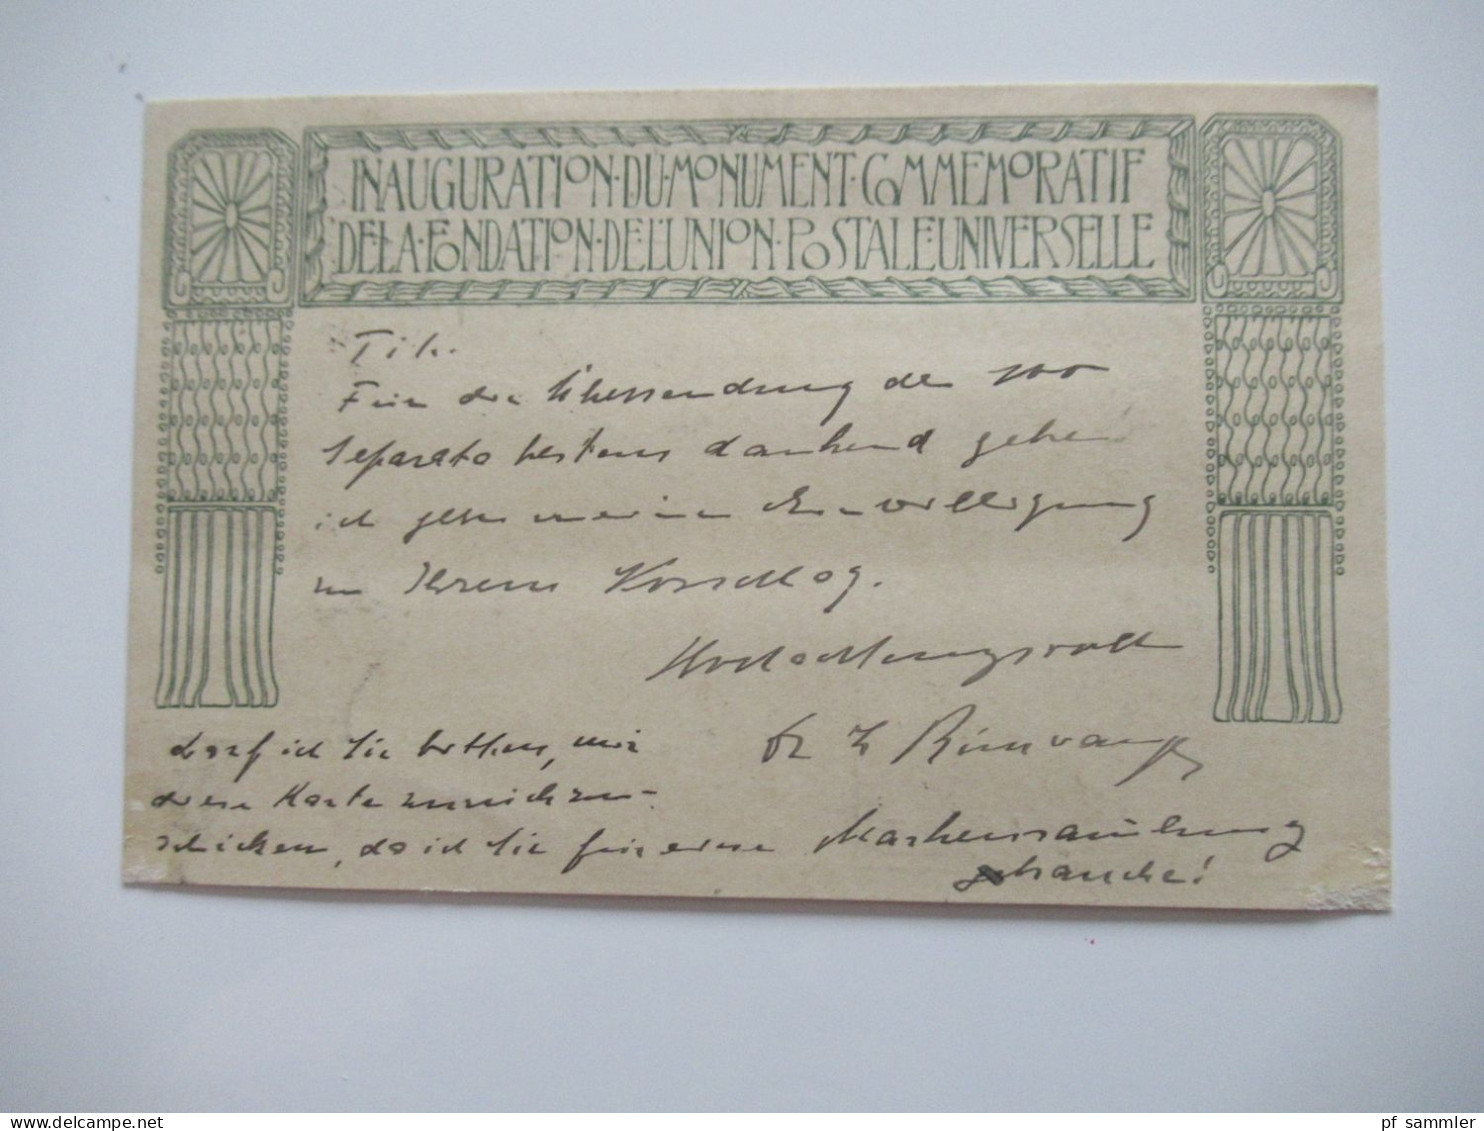 INAUGURATION·DU·MONUMENT·COMMEMORATIF
DE·LA·FONDATION·DE·L'UNION·POSTALE·UNIVERSELLE
Tit.
Für die Übersendung der 100
Separata bestens dankend geben
ich gern meine Einwilligung
zu Ihrem Vorschlag.
Hochachtungsvoll
Dr
darf ich Sie bitten, mir
diese Karte zurückzu-
schicken, da ich sie für eine Markensammlung
gebrauche!
pf sammler
delcampe.net